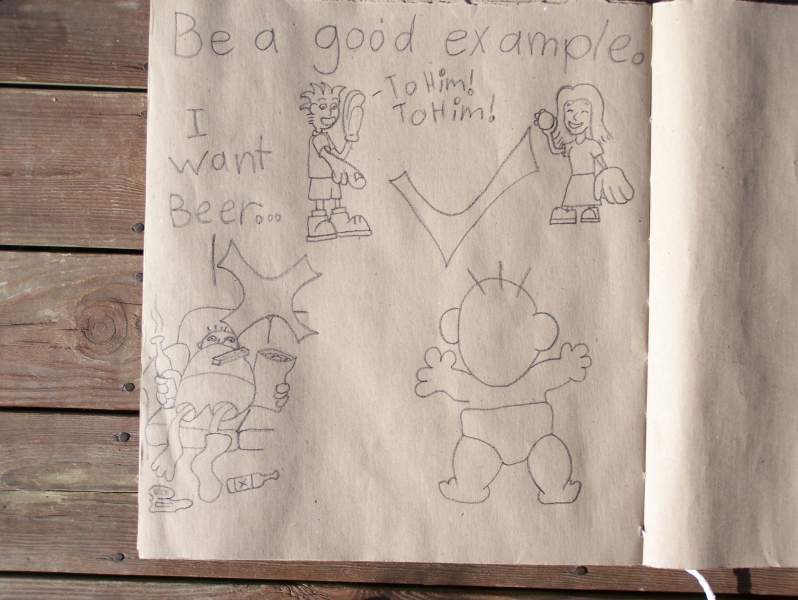 Be a good example.
I
want
Beer...
-To Him!
To Him!
X